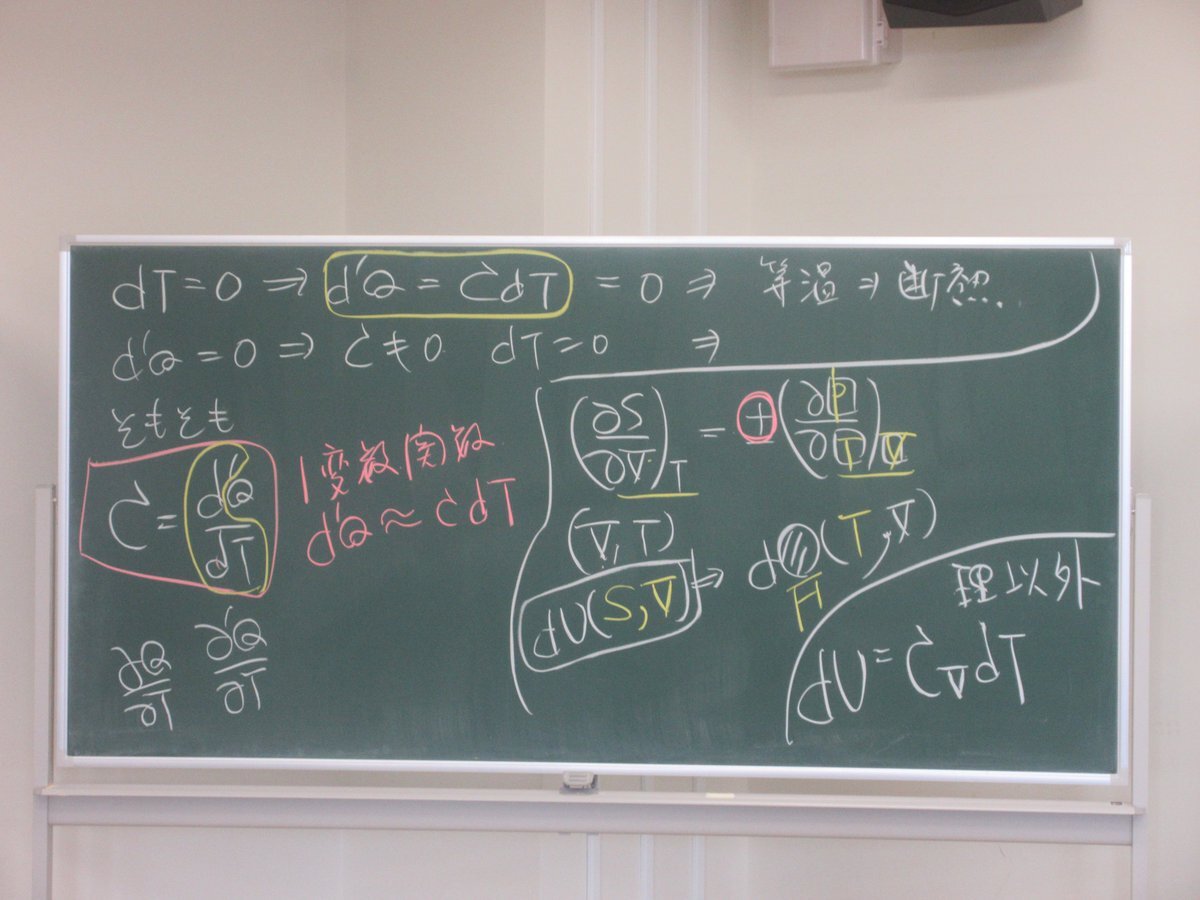 dT=0 ⇒ d'Q = CdT = 0 ⇒ 等温 ⇒ 断熱.
d'Q = 0 ⇒ C≠0 dT=0 ⇒
そもそも
C = d'Q/dT
1変数関数
d'Q ~ CdT
∂Q/∂T ∂'Q/∂T
(∂S/∂V)_T = +(∂P/∂T)_V
(V, T)
dU(S, V) ⇒ d (T, V)
F
理以外
dU = C_V dT